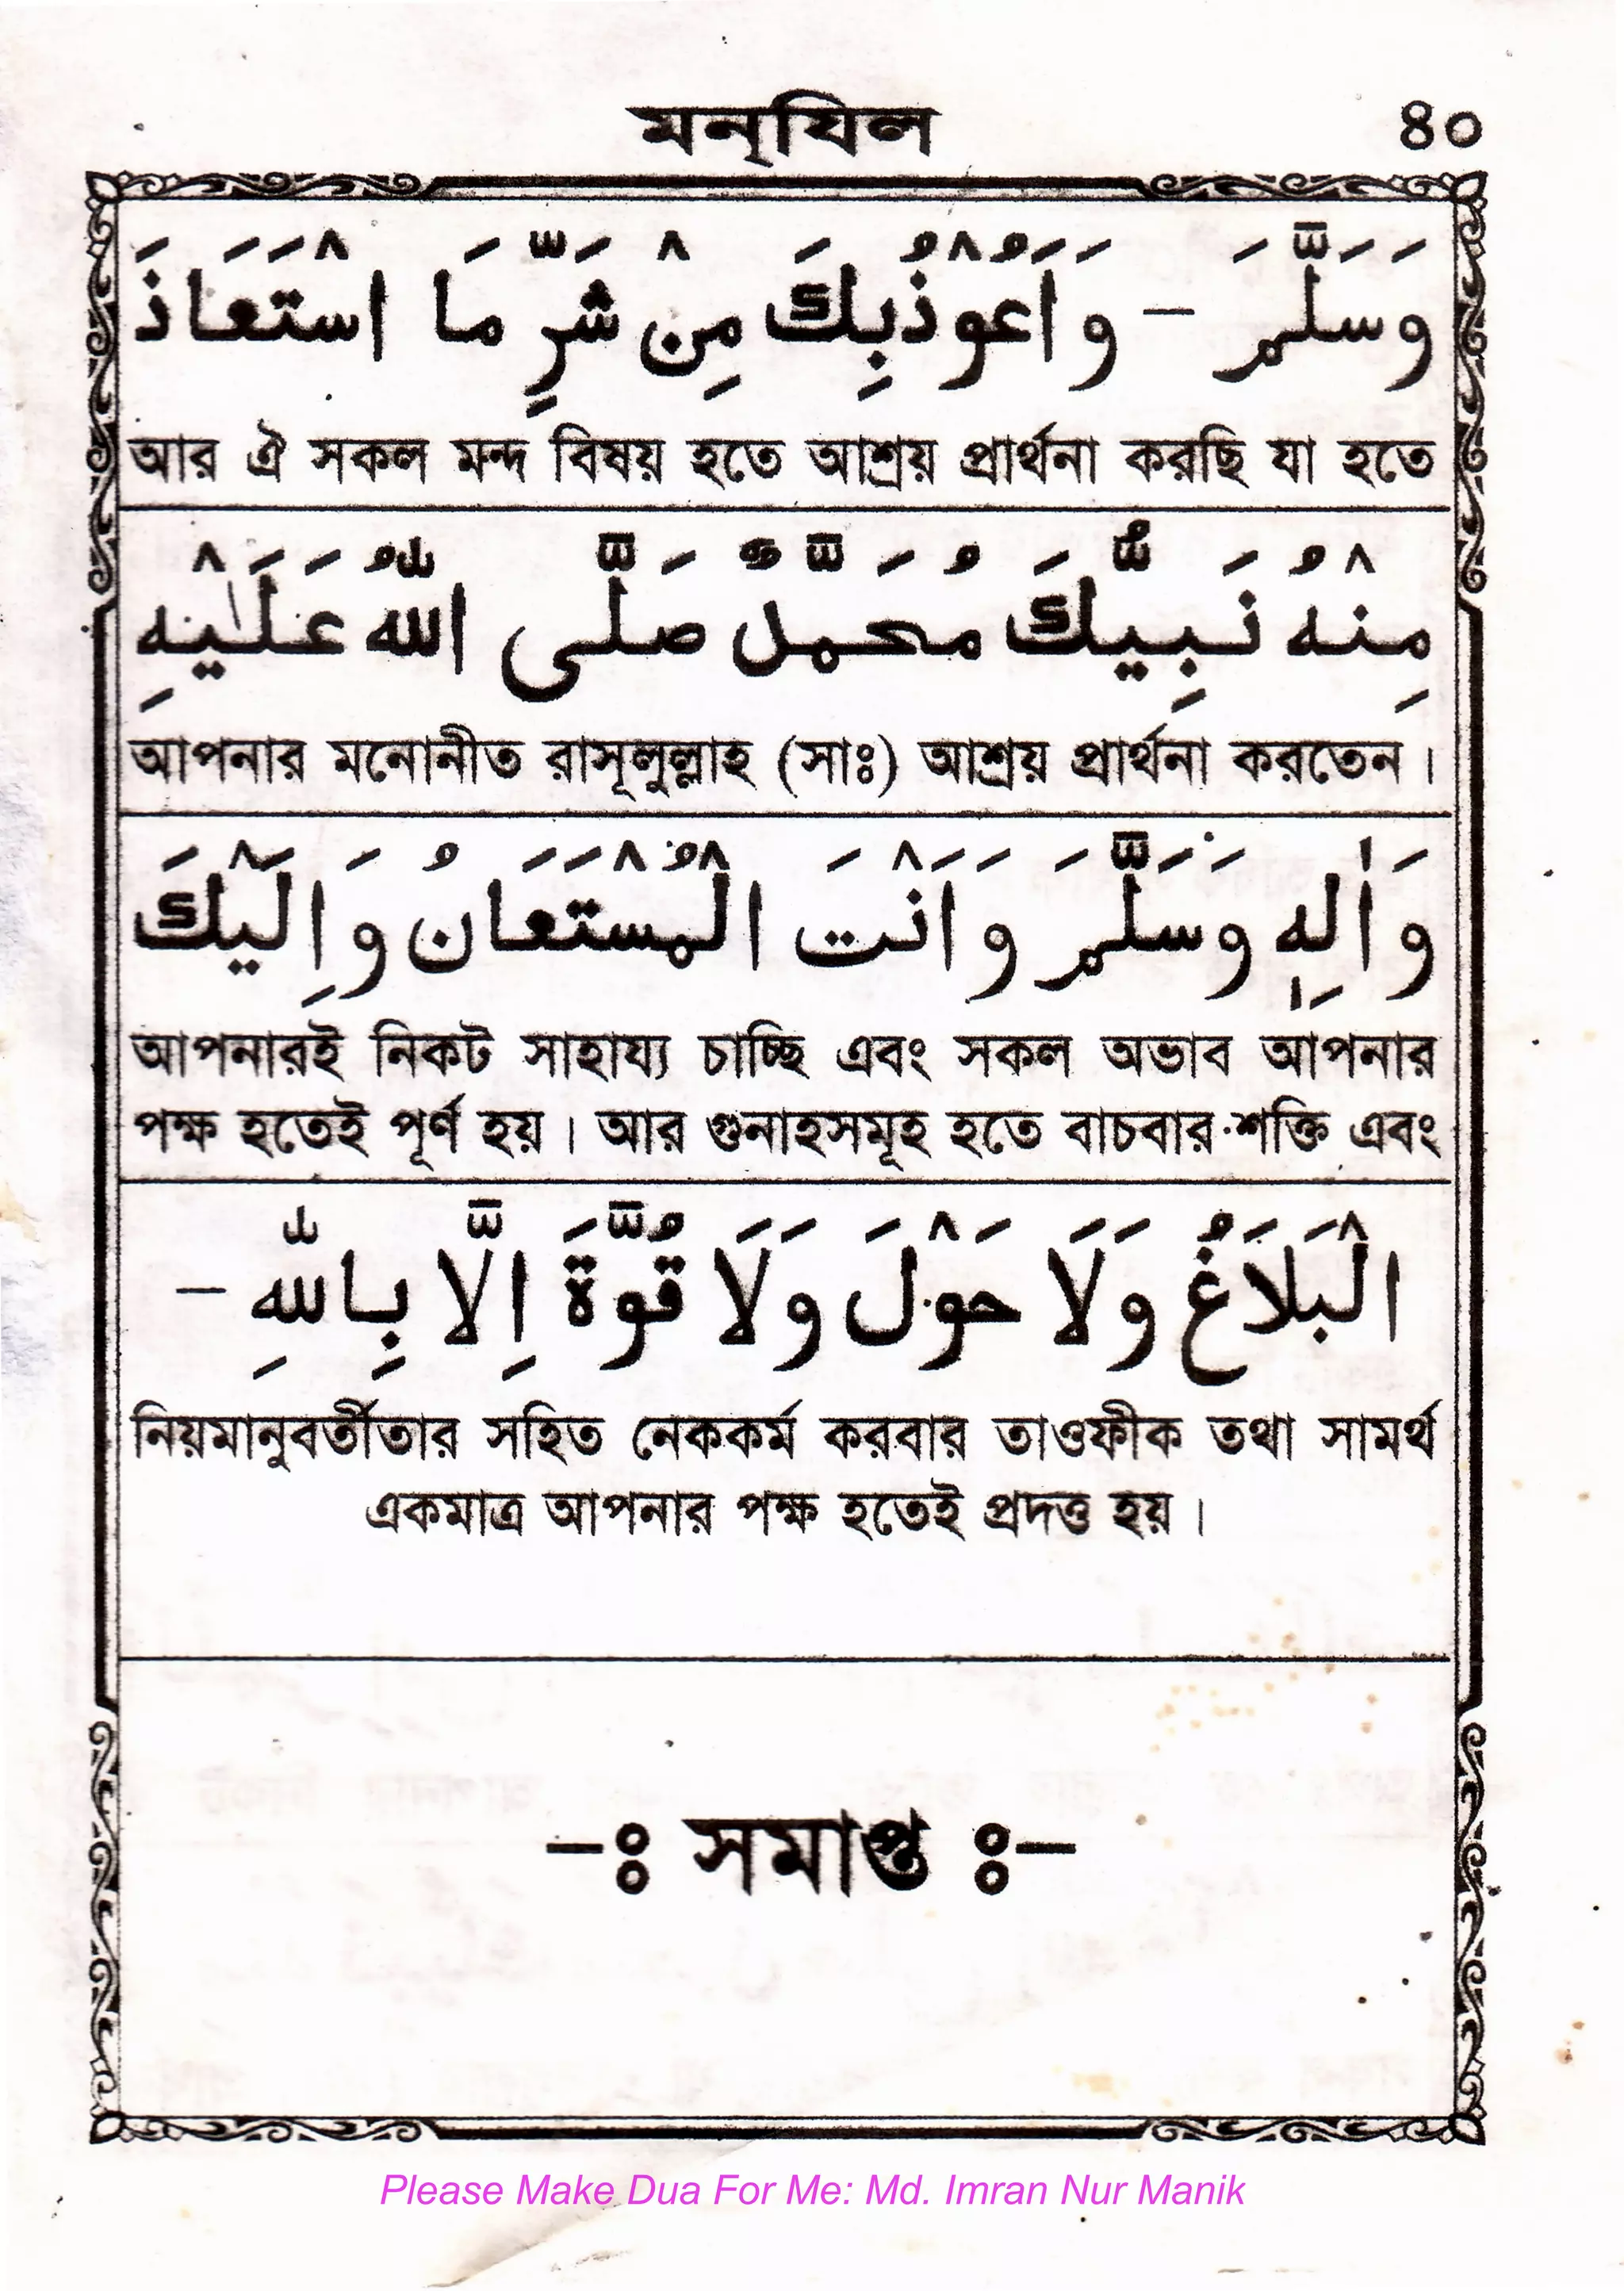 মন্যিল ৪০
وَسَلَّمَ - وَاَعُوْذُبِكَ مِنْ شَرِّ مَا اسْتَعَاذَ
আর ঐ সকল মন্দ বিষয় হতে আশ্রয় প্রার্থনা করছি যা হতে
مِنْهُ نَبِيُّكَ مُحَمَّدٌ صَلَّى اللّٰهُ عَلَيْهِ
আপনার মনোনীত রাসূলুল্লাহ (সাঃ) আশ্রয় প্রার্থনা করতেন।
وَاٰلِهٖ وَسَلَّمَ وَاَنْتَ الْمُسْتَعَانُ وَاِلَيْكَ
আপনারই নিকট সাহায্য চাচ্ছি এবং সকল অভাব আপনার
পক্ষ হতেই পূর্ণ হয়। আর গুনাহসমূহ হতে বাচবার শক্তি এবং
الْبَلَاغُ وَلَا حَوْلَ وَلَا قُوَّةَ اِلَّا بِاللّٰهِ -
নিয়মানুবর্তীতার সহিত নেককর্ম করবার তাওফীক তথা সামর্থ
একমাত্র আপনার পক্ষ হতেই প্রদত্ত হয়।
-ঃ সমাপ্ত ঃ-
Please Make Dua For Me: Md. Imran Nur Manik